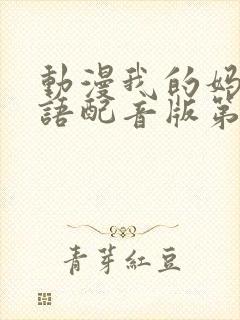 動漫我的媽
語配音版第
青芽紅豆